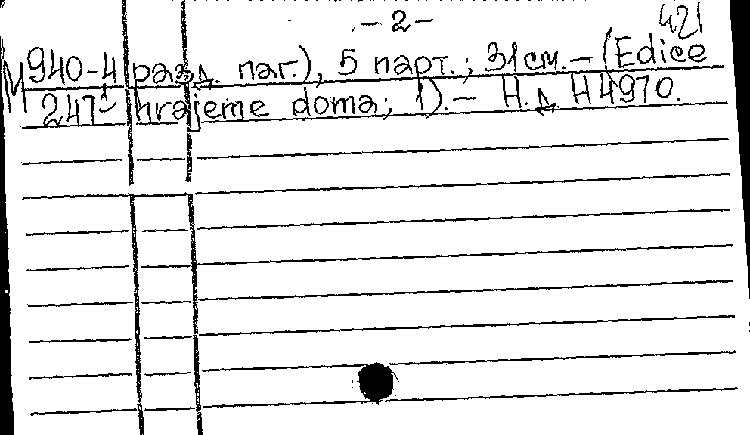 - 2 -
421
М 940-4 разд. паг.), 5 парт.; 31 см. – (Edice
247 hrajeme doma; 1). – Н. д. H 4970.